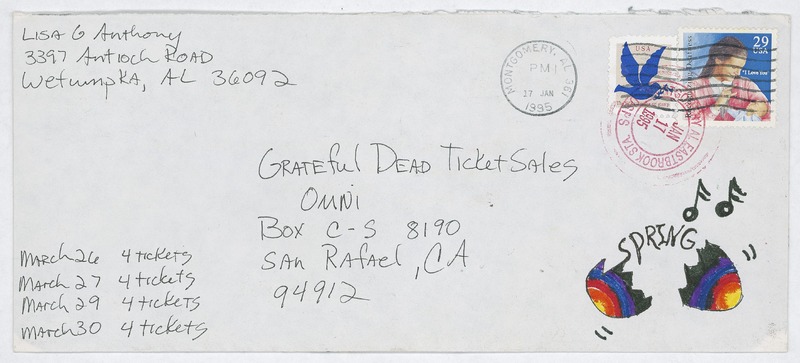 Lisa G Anthony
3397 Antioch Road
Wetumpka, AL 36092
MONTGOMERY, AL 361
PM
17 JAN
1995
USA
29
USA
"I Love You"
EASTBROOK STA.
JAN
17
1995
USPS
Grateful Dead Ticket Sales
Omni
Box C-S 8190
San Rafael, CA
94912
SPRING
March 26 4 tickets
March 27 4 tickets
March 29 4 tickets
March 30 4 tickets